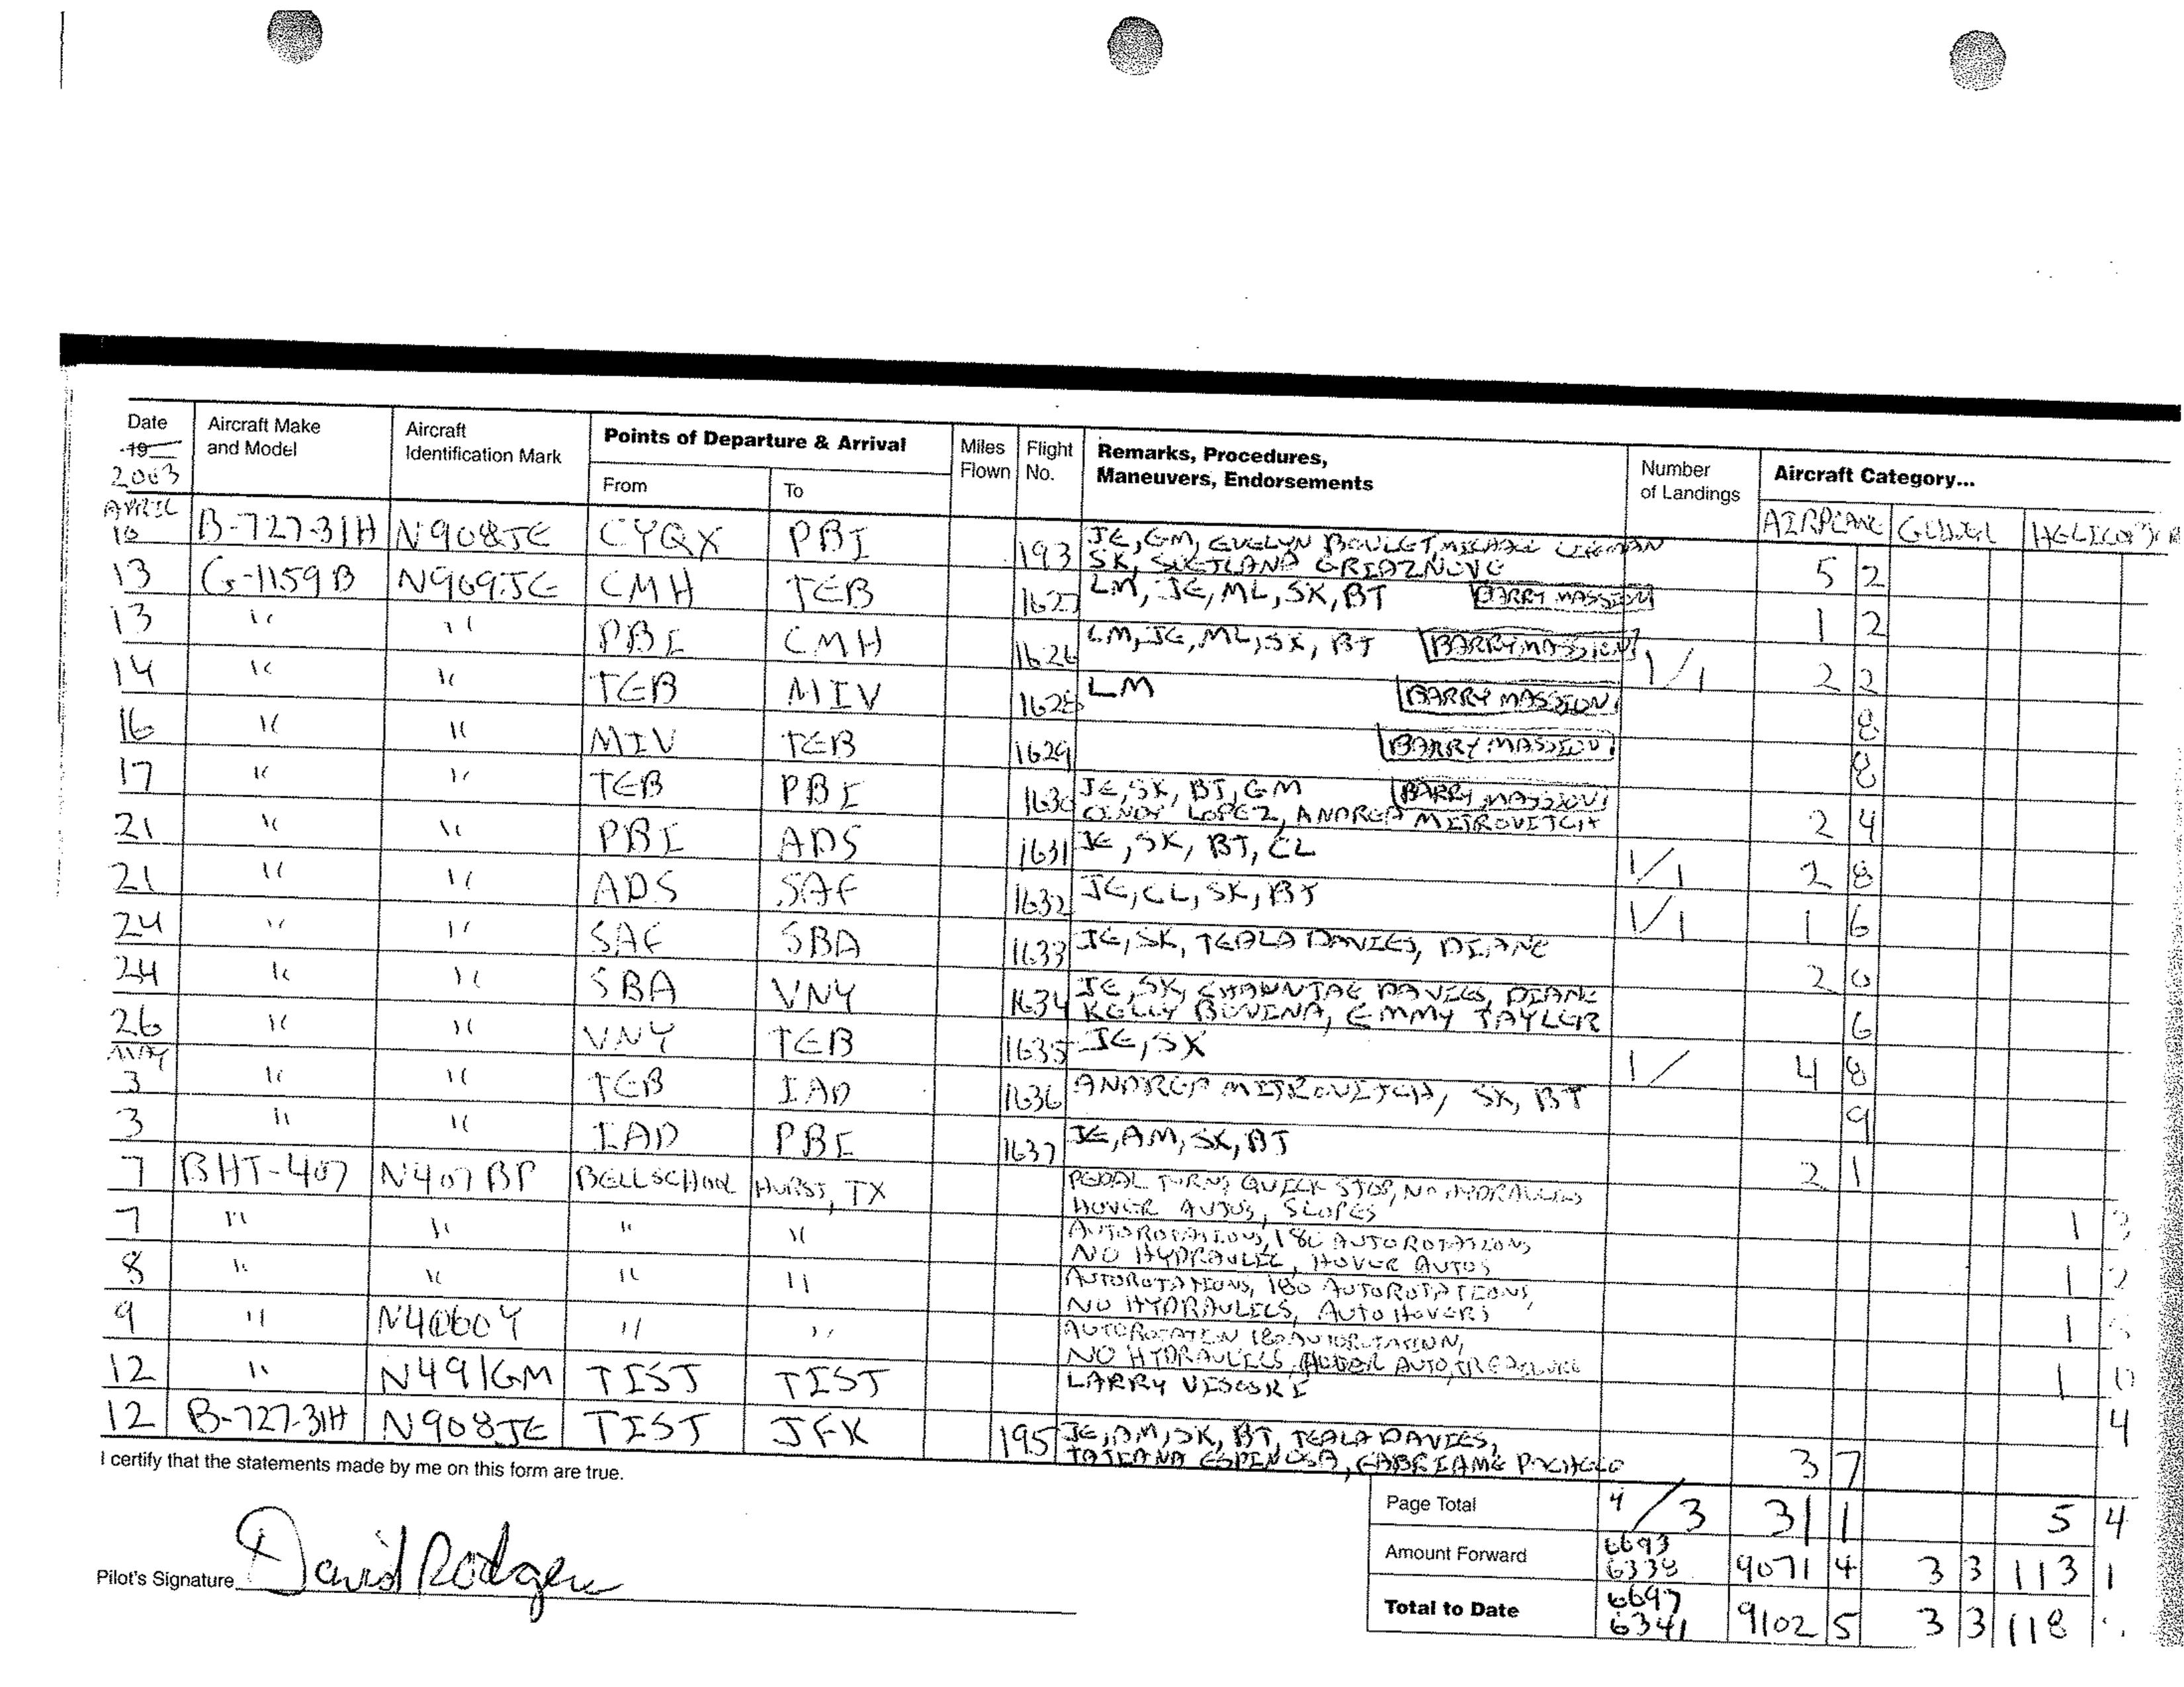 Date Aircraft Make Aircraft Points of Departure & Arrival Miles Flight Remarks, Procedures, Number Aircraft Category...
19 and Model Identification Mark Flown No. Maneuvers, Endorsements of Landings
2003 From To AIRPLANE
APRIL
10 B-727-31H N908JE CYQX PBI 193 JE, GM, EVELYN BOULET, MICHAEL 5 2
SK,
13 G-1159B N909JE CMH TEB 1627 LM, JE, ML, SK, BT BARRY MASSION 1 2
13 " " PBI CMH 1626 LM, JE, ML, SK, BT BARRY MASSION 1/1 2 2
14 " " TEB MIV 1628 LM BARRY MASSION 8
16 " " MIV TEB 1629 BARRY MASSION 8
17 " " TEB PBI 1630 JE, SK, BT, GM BARRY MASSION 2 4
CINDY LOPEZ, ANDREA MITROVITCH
21 " " PBI ADS 1631 JE, SK, BT, CL 1/1 2 8
21 " " ADS SAF 1632 JE, CL, SK, BT 1/1 1 6
24 " " SAF SBA 1633 JE, SK, TEALA DAVIES, DIANE 2 0
24 " " SBA VNY 1634 JE, SK, CHAUNTAE DAVIES, DIANE 6
KELLY BOVINA, EMMY TAYLER
26 " " VNY TEB 1635 JE, SK 1/ 4 8
MAY
3 " " TEB IAD 1636 ANDREA MITROVITCH, SK, BT 9
3 " " IAD PBI 1637 JE, AM, SK, BT 2 1
7 BHT-407 N407BP BELL SCHOOL HURST, TX PEDAL TURNS, QUICK STOP, NO HYDRAULICS 1
HOVER AUTOS, SLOPES
7 " " " " AUTOROTATIONS, 180 AUTOROTATIONS 1
NO HYDRAULIC, HOVER AUTOS
8 " " " " AUTOROTATIONS, 180 AUTOROTATIONS, 1
NO HYDRAULICS, AUTO HOVERS
9 " " " AUTOROTATION 180 AUTOROTATION, 1
NO HYDRAULICS, AUTO,
12 " N491GM TIST TIST LARRY VISOSKI 4
12 B-727-31H N908JE TIST JFK 195 JE, AM, SK, BT, TEALA DAVIES, 3 7
TATIANA ESPINOSA,
I certify that the statements made by me on this form are true.
Page Total 4/3 31 1 5 4
Amount Forward 6693 6338 9071 4 3 3 113 1
Pilot's Signature David Rodgers
Total to Date 6697 6341 9102 5 3 3 118